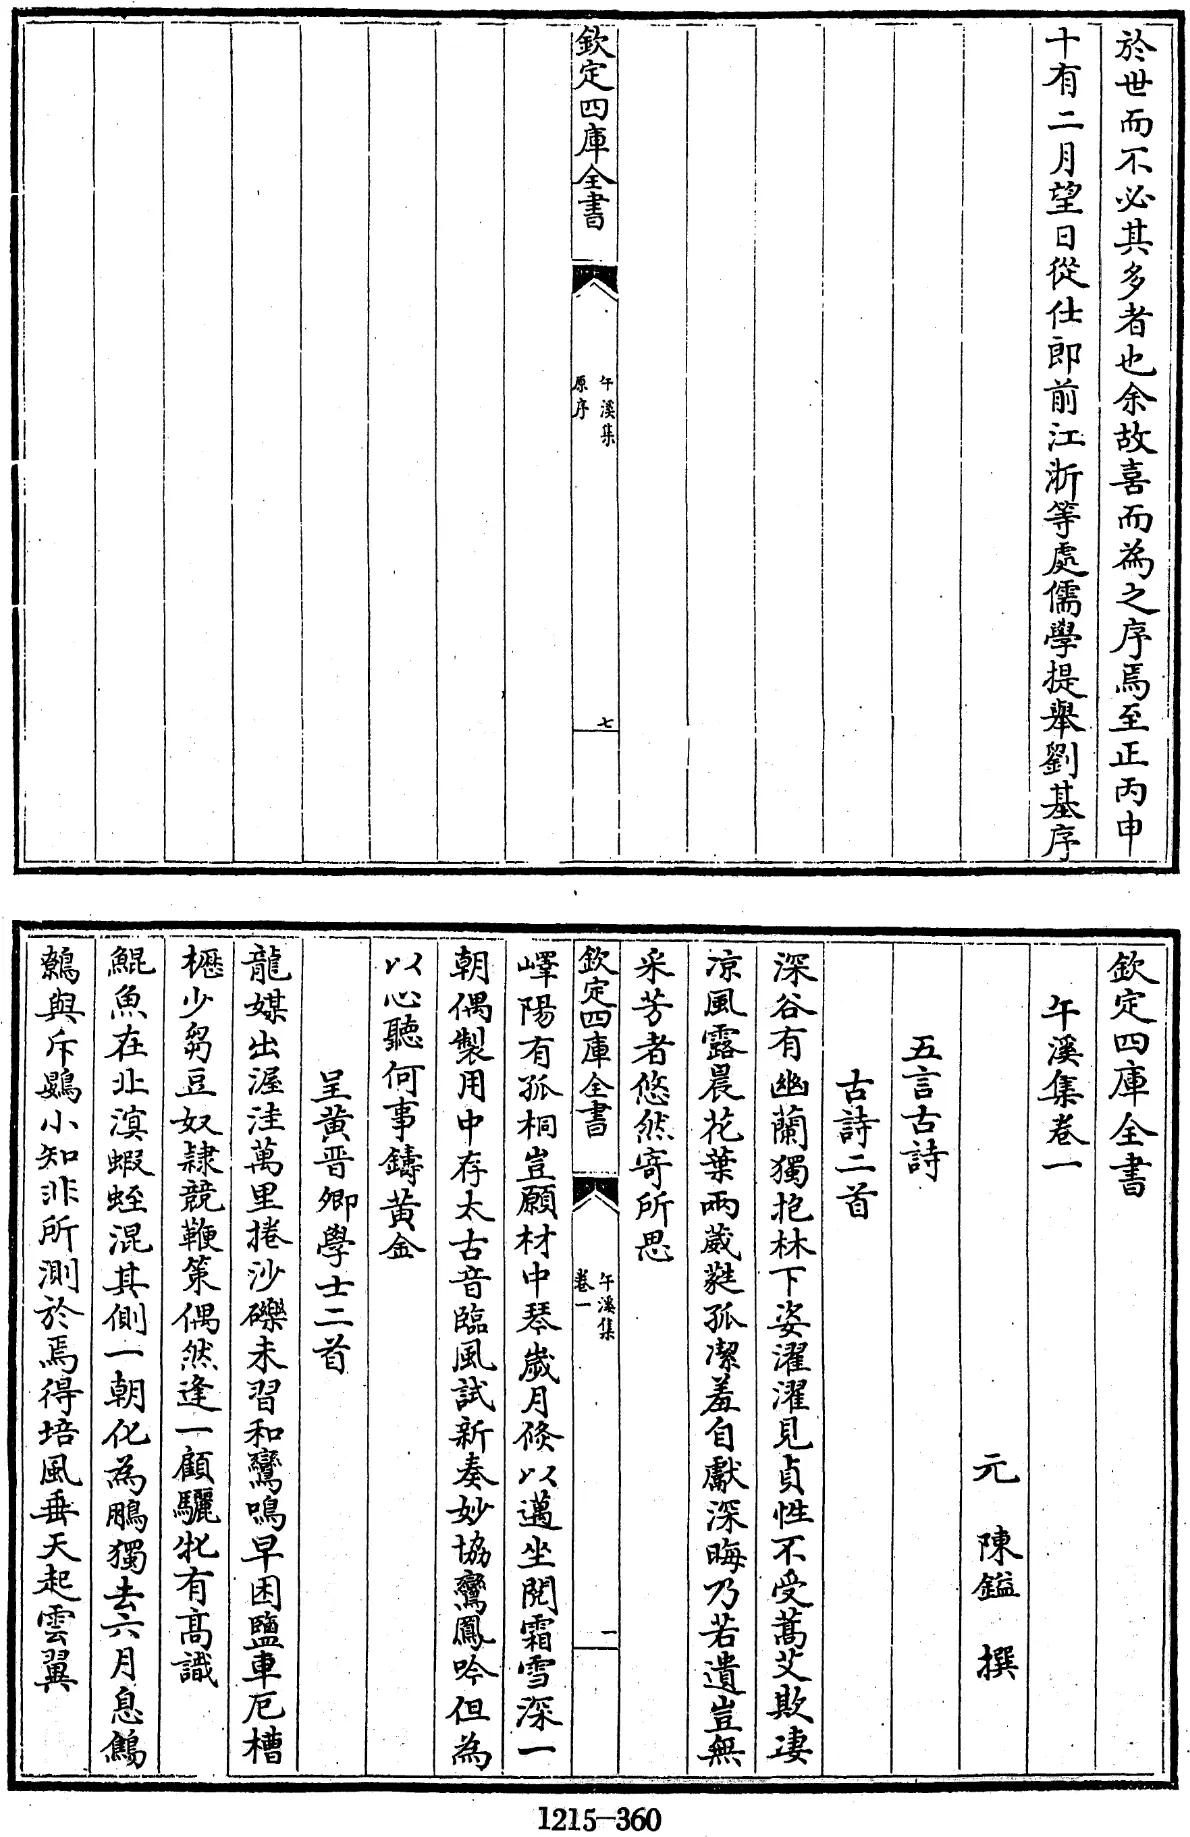 於世而不必其多者也余故喜而為之序焉至正丙申
十有二月望日從仕郎前江浙等處儒學提舉劉基序
欽定四庫全書
午溪集
原序
七
欽定四庫全書
午溪集卷一
元 陳鎰 撰
五言古詩
古詩二首
深谷有幽蘭獨抱林下姿濯濯見貞性不受蒿艾欺淒
涼風露晨花葉兩葳蕤孤潔羞自獻深晦乃若遺豈無
采芳者悠然寄所思
欽定四庫全書
午溪集
卷一
一
嶧陽有孤桐豈願材中琴歲月倐以邁坐閱霜雪深一
朝偶製用中存太古音臨風試新奏妙協鸞鳳吟但為
以心聽何事鑄黃金
呈黃晉卿學士二首
龍媒出渥洼萬里捲沙礫未習和鸞鳴早困鹽車厄槽
櫪少芻豆奴隷競鞭策偶然逢一顧驪牝有高識
鯤魚在北溟蝦蛭混其側一朝化為鵬獨去六月息鷦
鷯與斥鷃小知非所測於焉得培風垂天起雲翼
1215-360